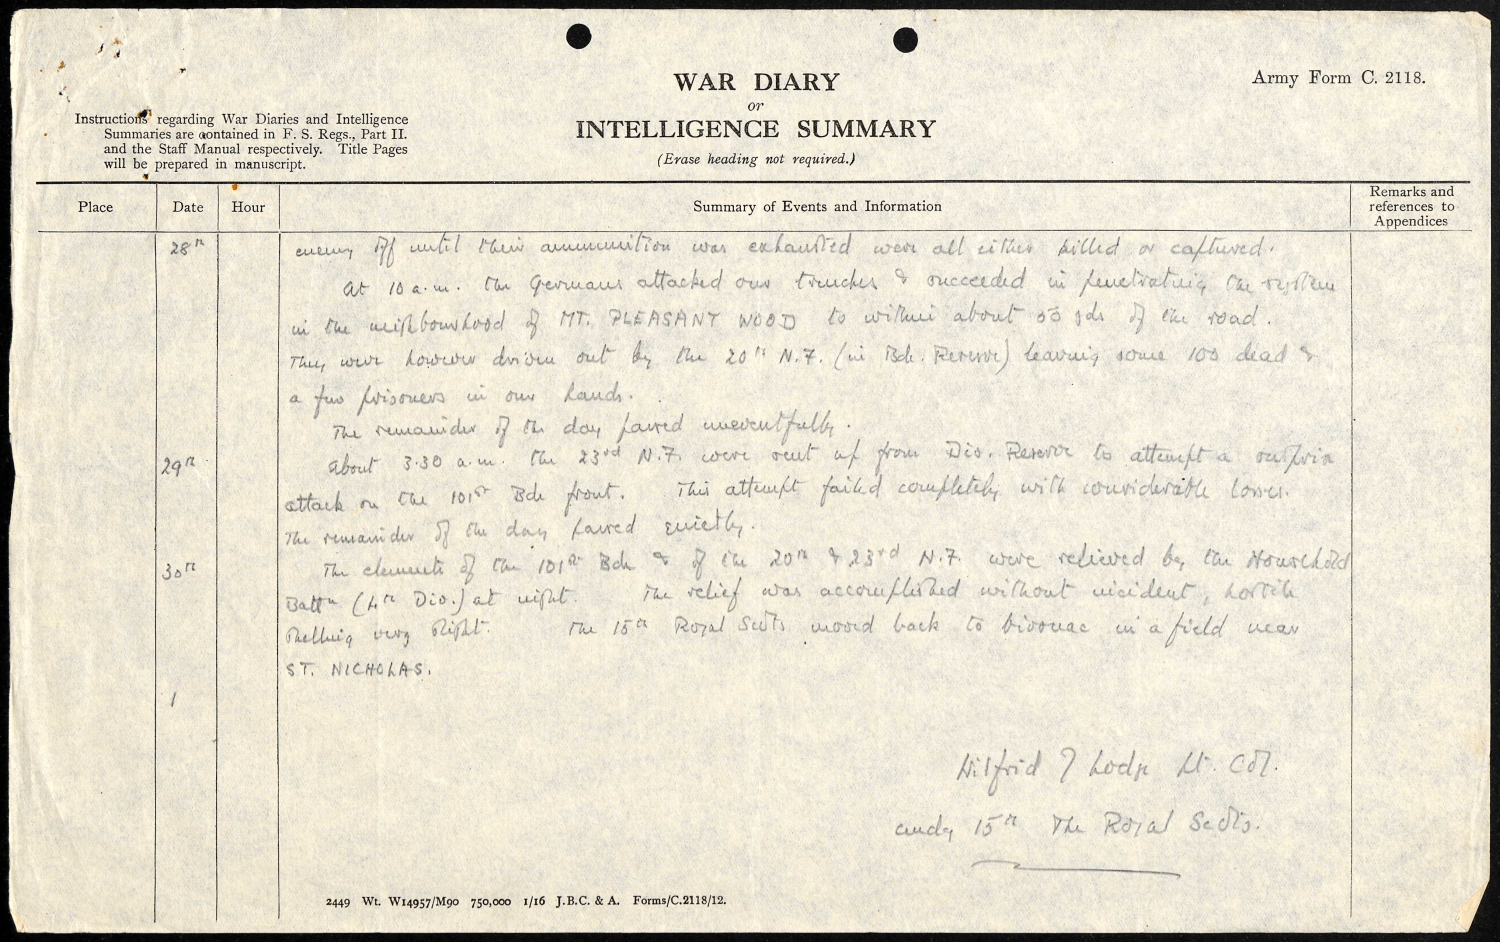 WAR DIARY
or
INTELLIGENCE SUMMARY
(Erase heading not required.)
Army Form C. 2118.
Instructions regarding War Diaries and Intelligence
Summaries are contained in F. S. Regs., Part II.
and the Staff Manual respectively. Title Pages
will be prepared in manuscript.
Place Date Hour Summary of Events and Information Remarks and references to Appendices
28th enemy off until their ammunition was exhausted were all either killed or captured.
At 10 a.m. the Germans attacked our trenches & succeeded in penetrating the system
in the neighbourhood of MT. PLEASANT WOOD to within about 50 yds of the road.
They were however driven out by the 20th N.F. (in Bde. Reserve) leaving some 100 dead &
a few prisoners in our hands.
The remainder of the day passed uneventfully.
29th About 3.30 a.m. the 23rd N.F. were sent up from Div. Reserve to attempt a surprise
attack on the 101st Bde front. This attempt failed completely with considerable losses.
The remainder of the day passed quietly.
30th The elements of the 101st Bde & of the 20th & 23rd N.F. were relieved by the Household
Battn (4th Div.) at night. The relief was accomplished without incident, hostile
shelling very slight. The 15th Royal Scots moved back to bivouac in a field near
ST. NICHOLAS.
1
Wilfrid J Lodge Lt. Col.
cmdg 15th The Royal Scots.
2449 Wt. W14957/M90 750,000 1/16 J.B.C. & A. Forms/C.2118/12.